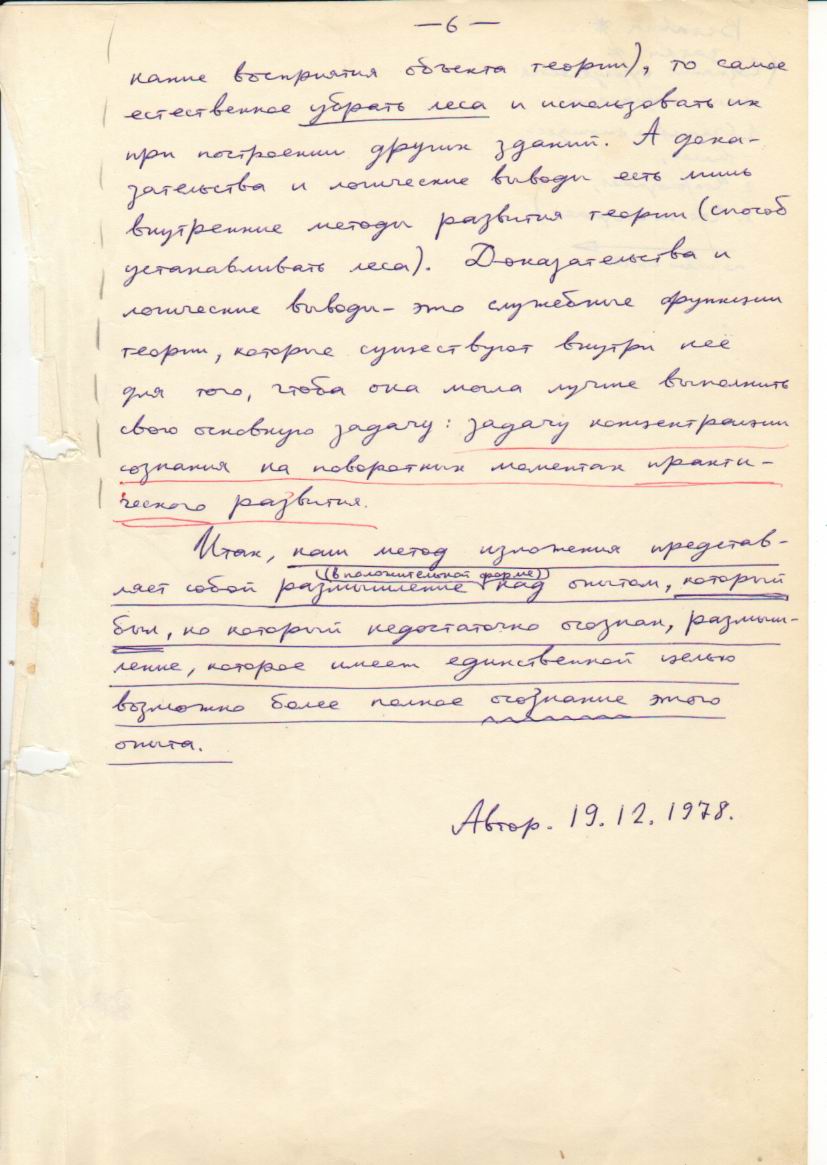 — 6 —
кание восприятия объекта теории), то самое
естественное убрать леса и использовать их
при построении других зданий. А дока-
зательства и логические выводы есть лишь
внутренние методы развития теории (способ
устанавливать леса). Доказательства и
логические выводы – это служебные функции
теории, которые существуют внутри неё
для того, чтоба она могла лучше выполнить
свою основную задачу: задачу концентрации
сознания на поворотных моментах практи-
ческого развития.
Итак, наш метод изложения представ-
(в положительной форме)
ляет собой размышление над опытом, который
был, но который недостаточно осознан, размыш-
ление, которое имеет единственной целью
возможно более полное осознание этого
опыта.
Автор. 19.12.1978.